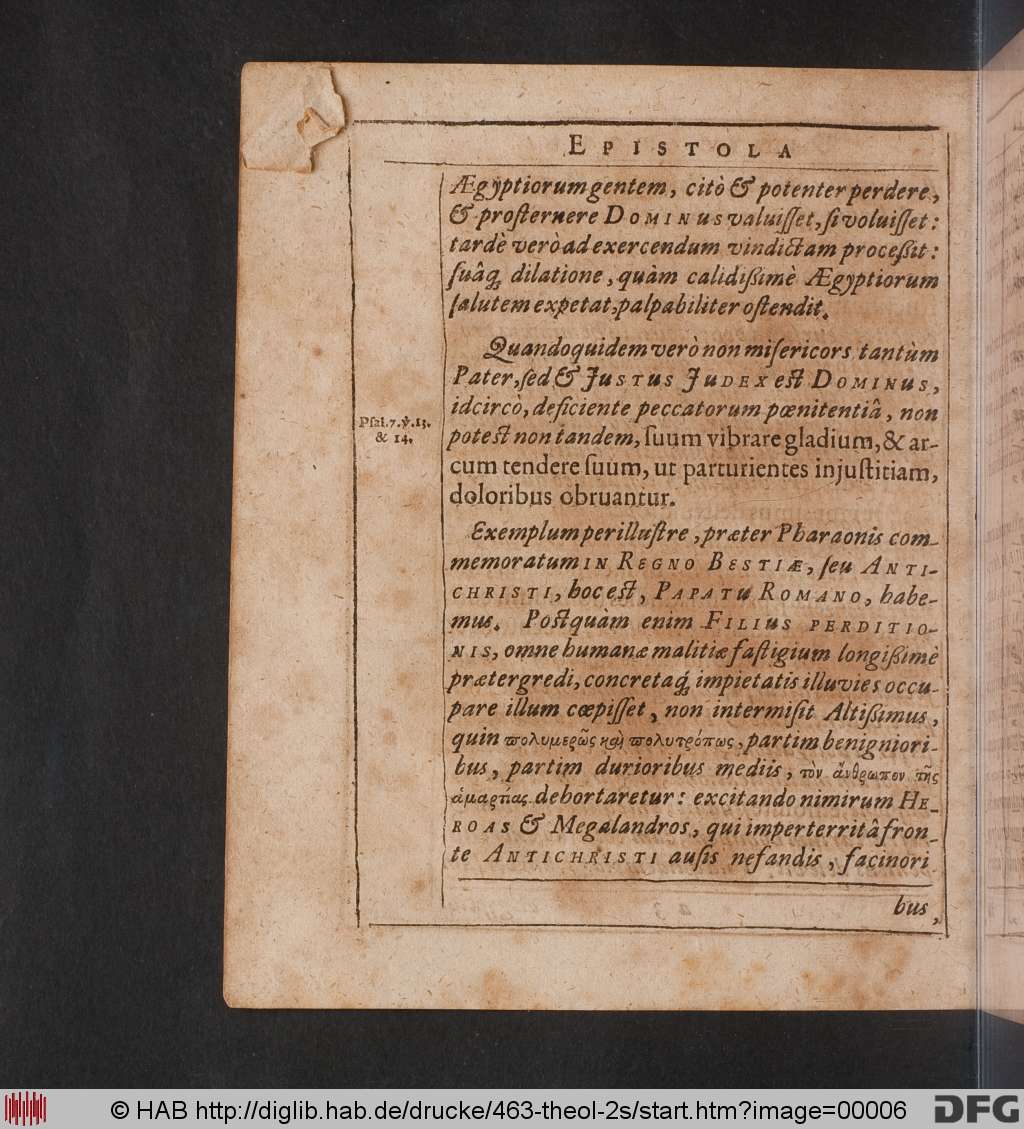 EPISTOLA
Ægyptiorum gentem, citò & potenter perdere,
& prosternere DOMINUS valuisset, si voluisset:
tardè verò ad exercendum vindictam processit:
suâq́; dilatione, quàm calidissimè Ægyptiorum
salutem expetat, palpabiliter ostendit.
Quandoquidem verò non misericors tantùm
Pater, sed & JUSTUS JUDEX est DOMINUS,
idcircò, deficiente peccatorum pœnitentiâ, non
Psal. 7. ℣. 13.
& 14.
potest non tandem, suum vibrare gladium, & ar-
cum tendere suum, ut parturientes injustitiam,
doloribus obruantur.
Exemplum perillustre, præter Pharaonis com-
memoratum IN REGNO BESTIÆ, seu ANTI-
CHRISTI, hoc est, PAPATU ROMANO, habe-
mus. Postquàm enim FILIUS PERDITIO-
NIS, omne humanæ malitiæ fastigium longissimè
prætergredi, concretaq́; impietatis illuvies occu-
pare illum cœpisset, non intermisit Altissimus,
quin πολυμερῶς καὶ πολυτρόπως, partim benigniori-
bus, partim durioribus mediis, τὸν ἄνθρωπον τῆς
ἁμαρτίας dehortaretur: excitando nimirum HE-
ROAS & Megalandros, qui imperterritâ fron-
te ANTICHRISTI ausis nefandis, facinori
bus,
© HAB http://diglib.hab.de/drucke/463-theol-2s/start.htm?image=00006
DFG